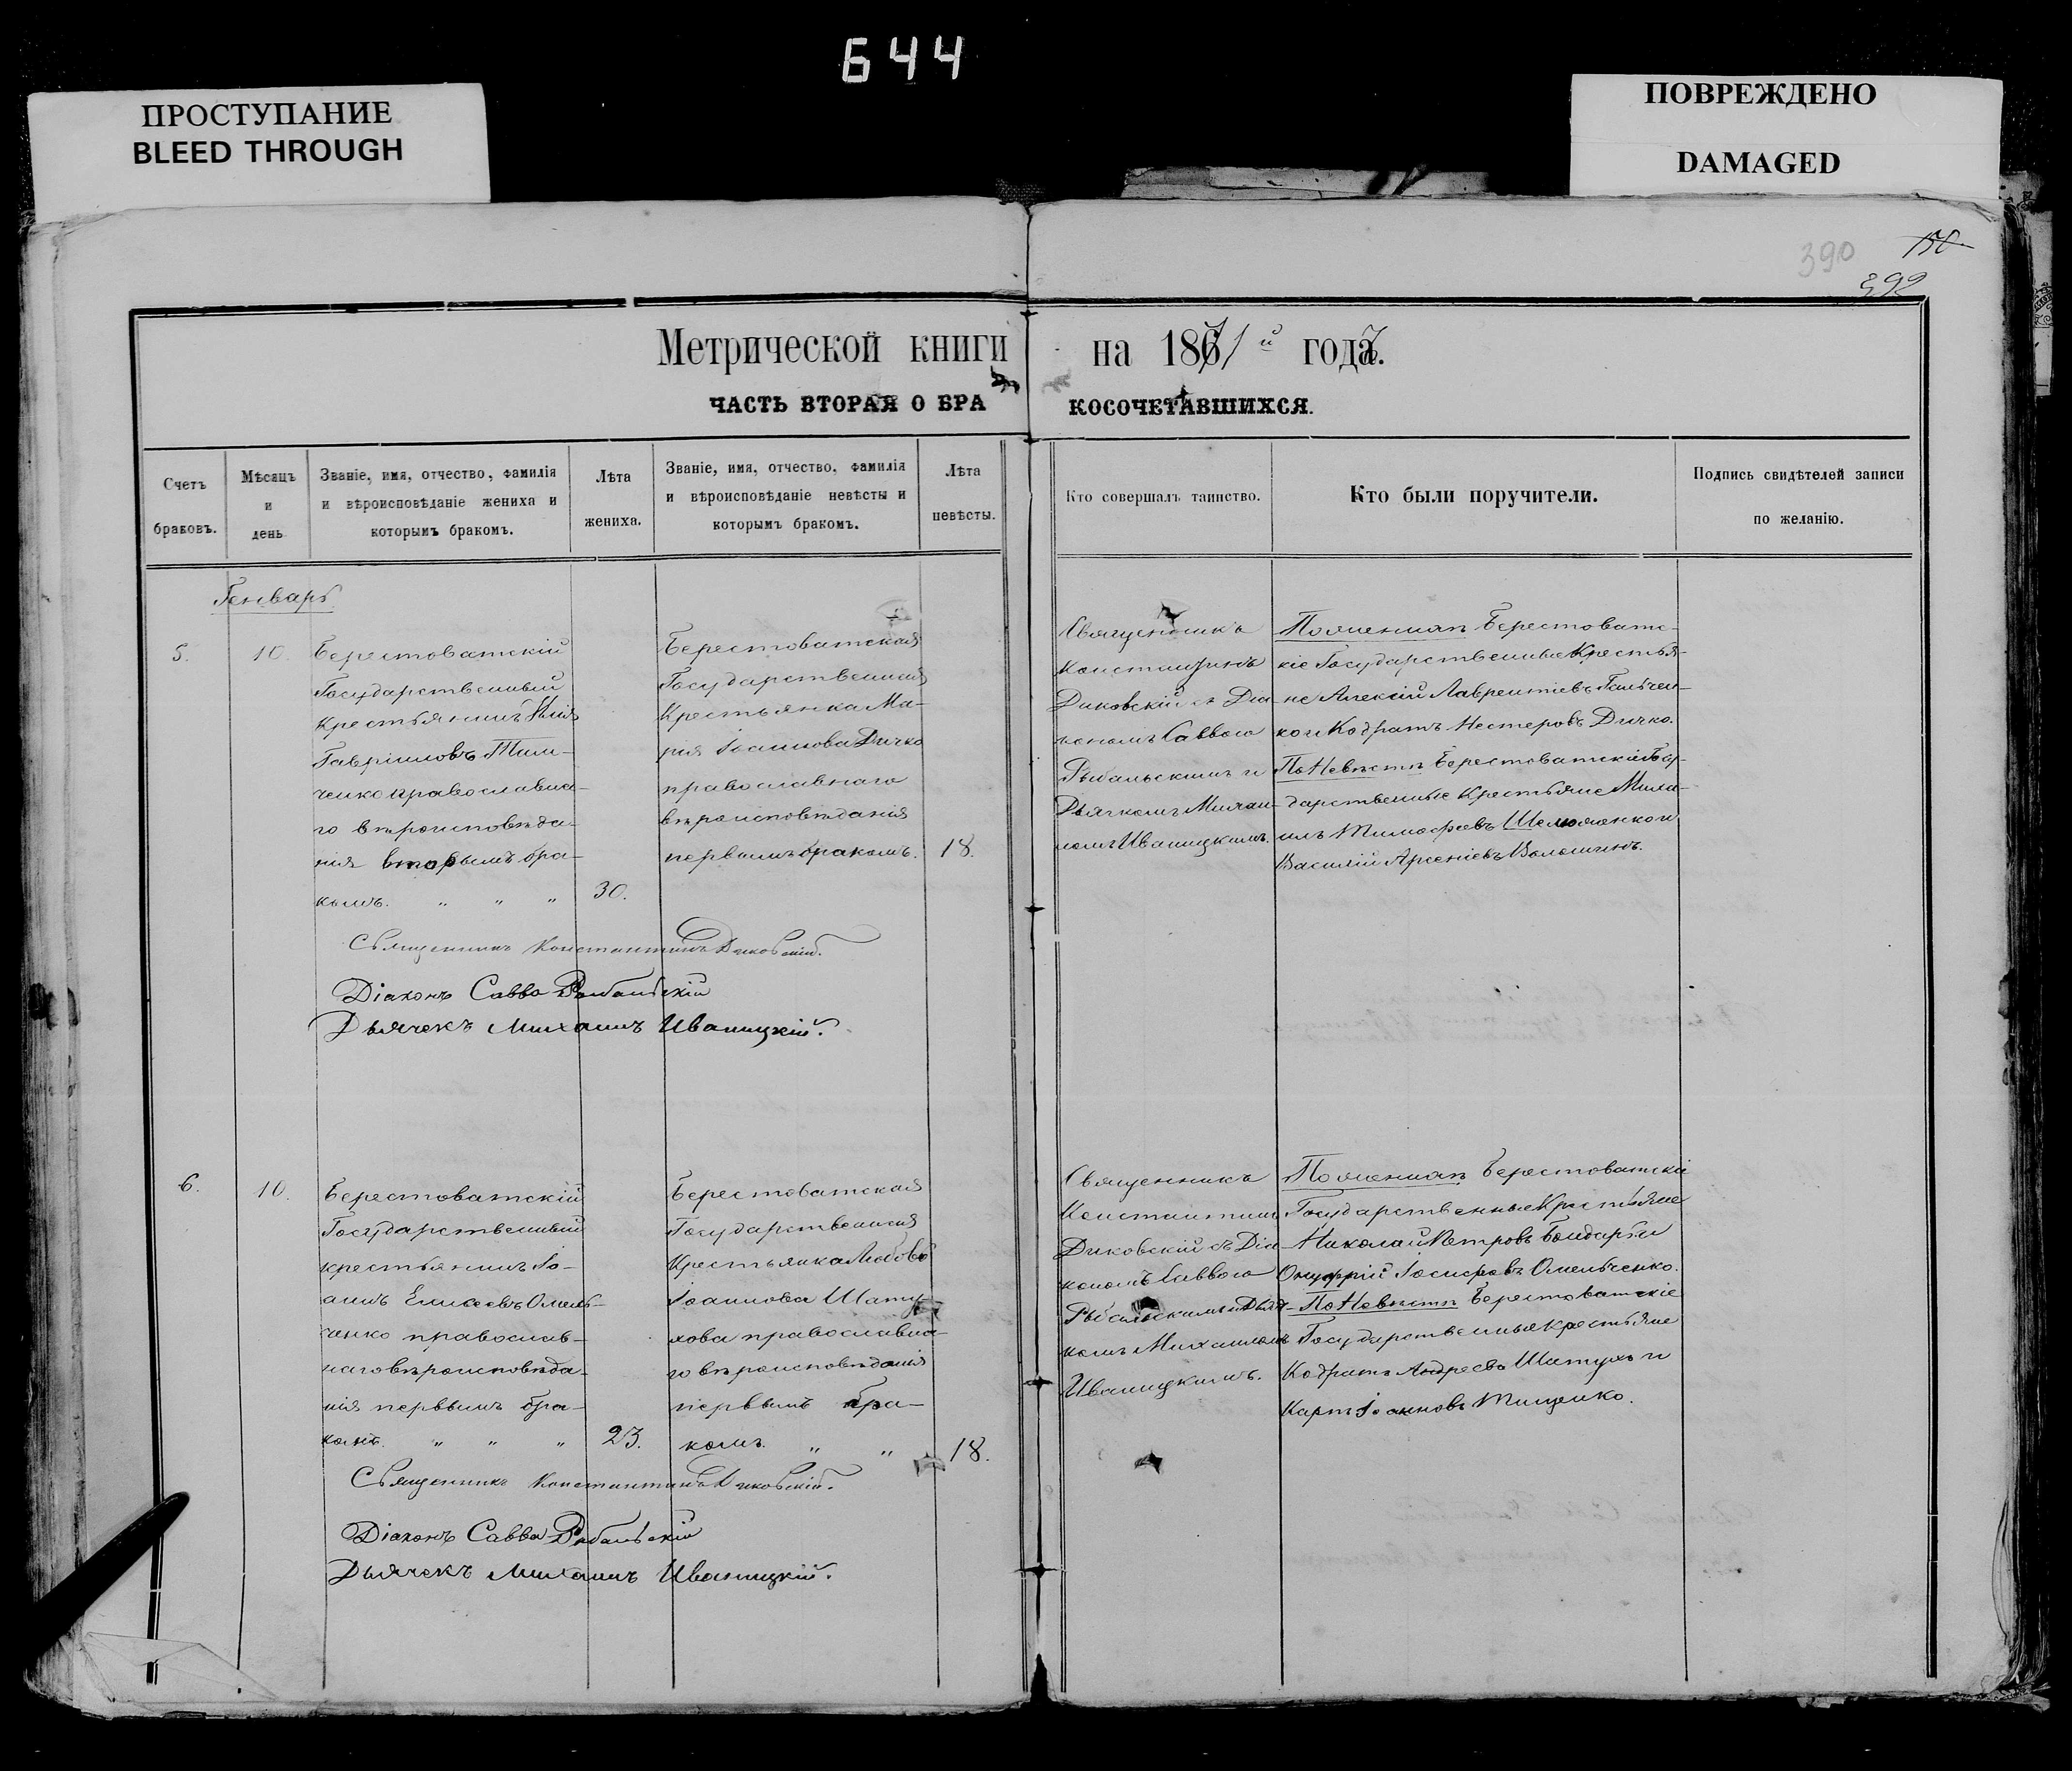 644
ПРОСТУПАНИЕ
BLEED THROUGH
ПОВРЕЖДЕНО
DAMAGED
390
392
Метрической книги на 1871 й годъ.
ЧАСТЬ ВТОРАЯ О БРАКОСОЧЕТАВШИХСЯ.
Счетъ браковъ.
Мѣсяцъ и день
Званіе, имя, отчество, фамилія
и вѣроисповѣданіе жениха и
которымъ бракомъ.
Лѣта жениха.
Званіе, имя, отчество, фамилія
и вѣроисповѣданіе невѣсты и
которымъ бракомъ.
Лѣта невѣсты.
Кто совершалъ таинство.
Кто были поручители.
Подпись свидѣтелей записи
по желанію.
Генварь
5.
10.
Берестоватскій
Государственный
Крестьянинъ
Гавріиловъ
ченко православна-
го вѣроисповѣда-
нія вторымъ бра-
комъ. " " "
30.
Берестоватская
Государственная
Крестьянка Ма-
рія Іоаннова Дичко
православнаго
вѣроисповѣданія
первымъ бракомъ.
18.
Священникъ
Константинъ
Диковскій съ Діа-
кономъ Саввою
Рыбальскимъ и
Дьячкомъ Михаи-
ломъ Иваницкимъ.
По женихѣ Берестоватс-
кіе Государственные Крестья-
не Алексій Лаврентіевъ
ко и Кодратъ Нестеровъ Дичко.
По Невѣстѣ Берестоватскіе Госу-
дарственные Крестьяне Миха-
илъ Тимофеевъ и
Василій Арсеніевъ Волошинъ.
Священникъ Константинъ Диковскій.
Діаконъ Савва Рыбальскій
Дьячекъ Михаилъ Иваницкій.
6.
10.
Берестоватскій
Государственный
крестьянинъ Іо-
аннъ Елисеевъ Омель-
ченко православ-
наго вѣроисповѣда-
нія первымъ бра-
комъ. " " "
23.
Берестоватская
Государственная
Крестьянка Любовь
Іоаннова Шату-
хова православна-
го вѣроисповѣданія
первымъ бра-
комъ. " "
18.
Священникъ
Константинъ
Диковскій съ Діа-
кономъ Саввою
Рыбальскимъ и Дьяч-
комъ Михаиломъ
Иваницкимъ.
По женихѣ Берестоватскіе
Государственные Крестьяне
Николай Петровъ Бондарь и
Онуфрій Іосифовъ Омельченко.
По Невѣстѣ Берестоватскіе
Государственные крестьяне
Кодратъ Андреевъ Шатухъ и
Карпъ Іоанновъ Тищенко.
Священникъ Константинъ Диковскій.
Діаконъ Савва Рыбальскій
Дьячекъ Михаилъ Иваницкій.